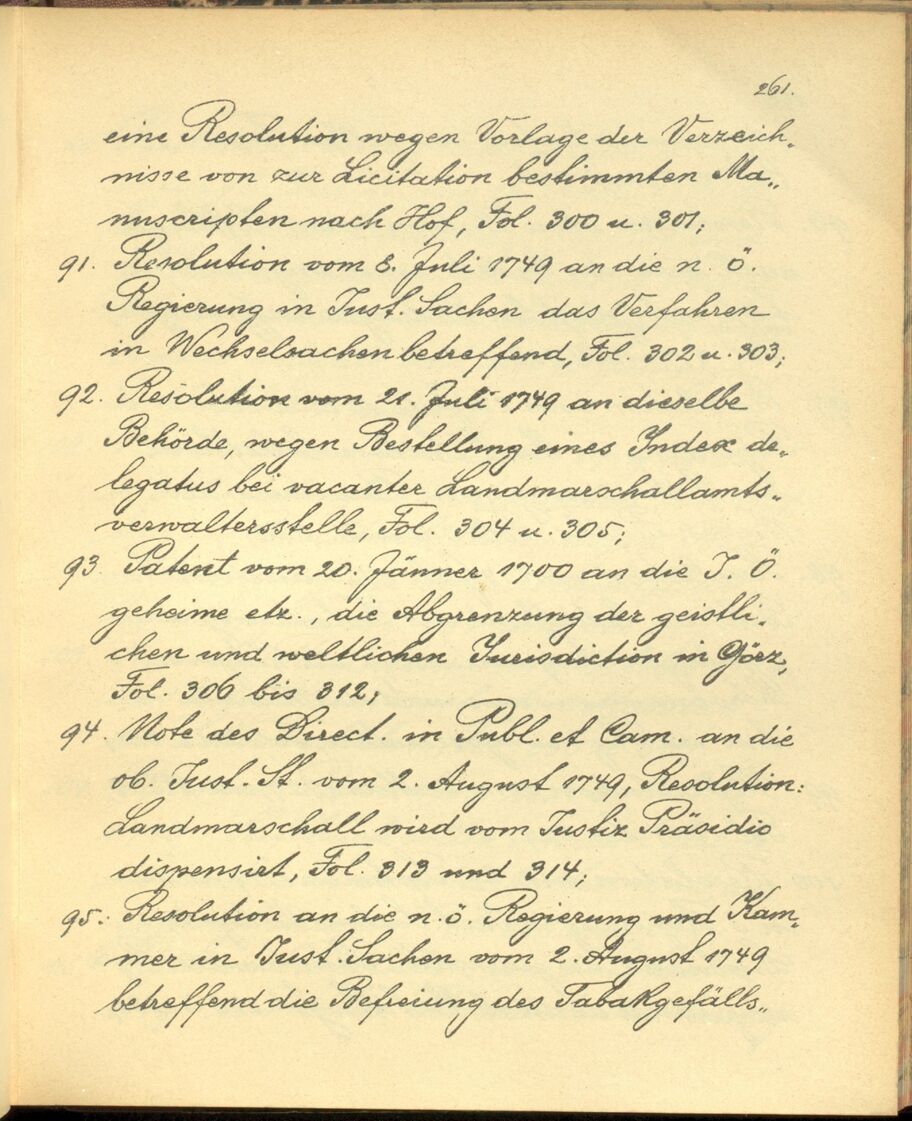 261.
eine Resolution wegen Vorlage der Verzeich„
nisse von zur Licitation bestimmten Ma„
nuscripten nach Hof, Fol. 300 u. 301;
91. Resolution vom 8. Juli 1749 an die n. ö.
Regierung in Just. Sachen das Verfahren
in Wechselsachen betreffend, Fol. 302 u. 303;
92. Resolution vom 21. Juli 1749 an dieselbe
Behörde, wegen Bestellung eines Index de„
legatus bei vacanter Landmarschallamts„
verwaltersstelle, Fol. 304 u. 305;
93. Patent vom 20. Jänner 1700 an die I. Ö.
geheime etz., die Abgrenzung der geistli„
chen und weltlichen Jurisdiction in Görz,
Fol. 306 bis 312;
94. Note des Direct. in Publ. et Cam. an die
ob. Just. St. vom 2. August 1749, Resolution:
Landmarschall wird vom Justiz Präsidio
dispensirt, Fol. 313 und 314;
95. Resolution an die n. ö. Regierung und Kam„
mer in Just. Sachen vom 2. August 1749
betreffend die Befreiung des Tabakgefälls„